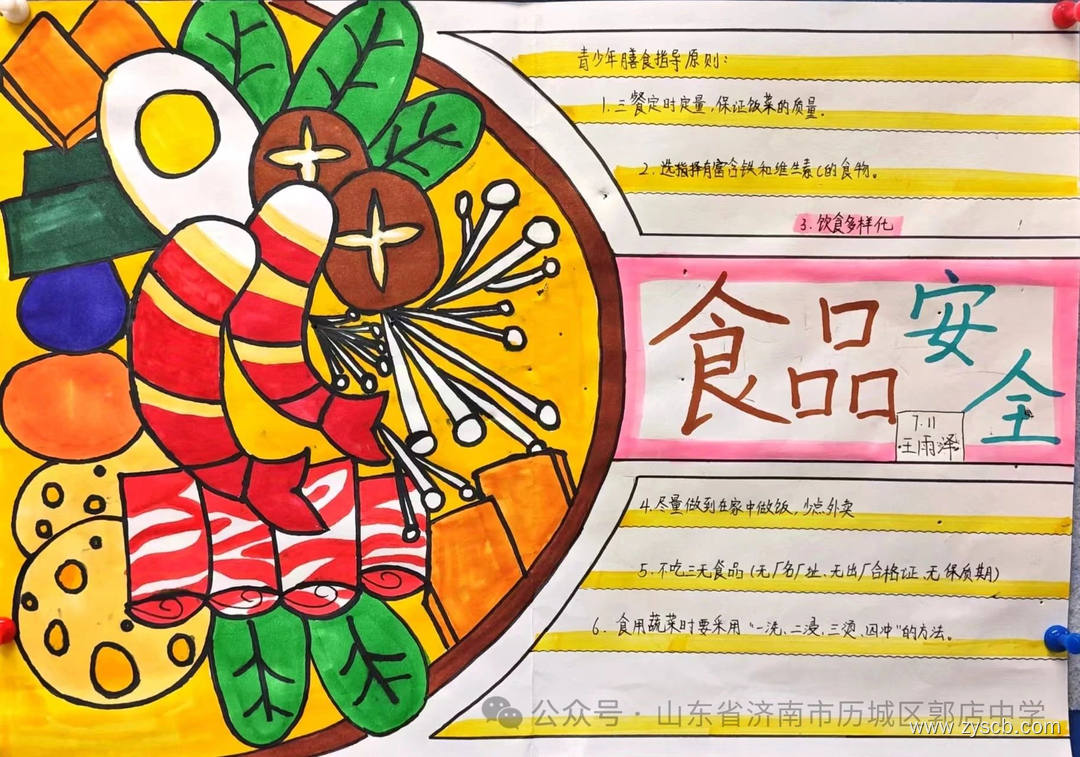 青少年膳食指导原则：
1.三餐定时定量，保证饭菜的质量。
2.选择有富含铁和维生素C的食物。
3.饮食多样化
食品安全
7.11
王雨泽
4.尽量做到在家中做饭，少点外卖
5.不吃三无食品（无厂名厂址、无出厂合格证、无保质期）
6.食用蔬菜时要采用“一洗，二浸，三烫，四冲”的方法。
公众号·山东省济南市历城区郭店中学
www.zyscb.com